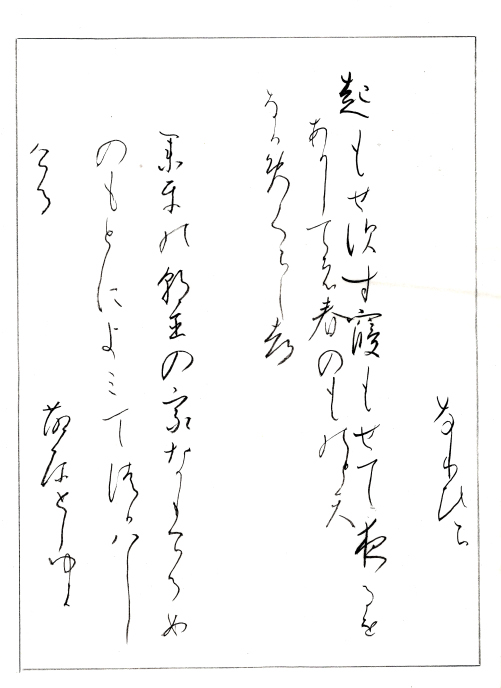 なりひら
起もせす寝もせて夜るを
あかしては春のものとて
なかめくらしつ
業平の朝臣の家なりける女
のもとによみてつかハし
ける
藤原としゆき